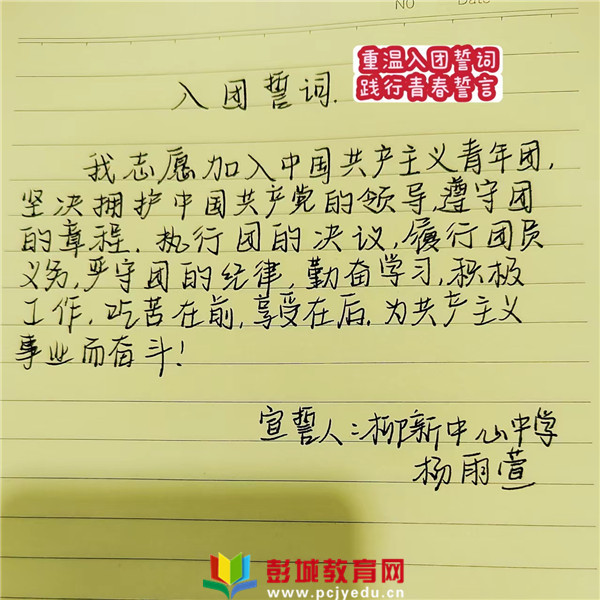 NO
Date
重温入团誓词
践行青春誓言
入团誓词.
我志愿加入中国共产主义青年团,
坚决拥护中国共产党的领导,遵守团
的章程.执行团的决议,履行团员
义务,严守团的纪律,勤奋学习,积极
工作,吃苦在前,享受在后.为共产主义
事业而奋斗!
宣誓人:柳新中心中学
杨雨萱
彭城教育网
www.pcjyedu.cn